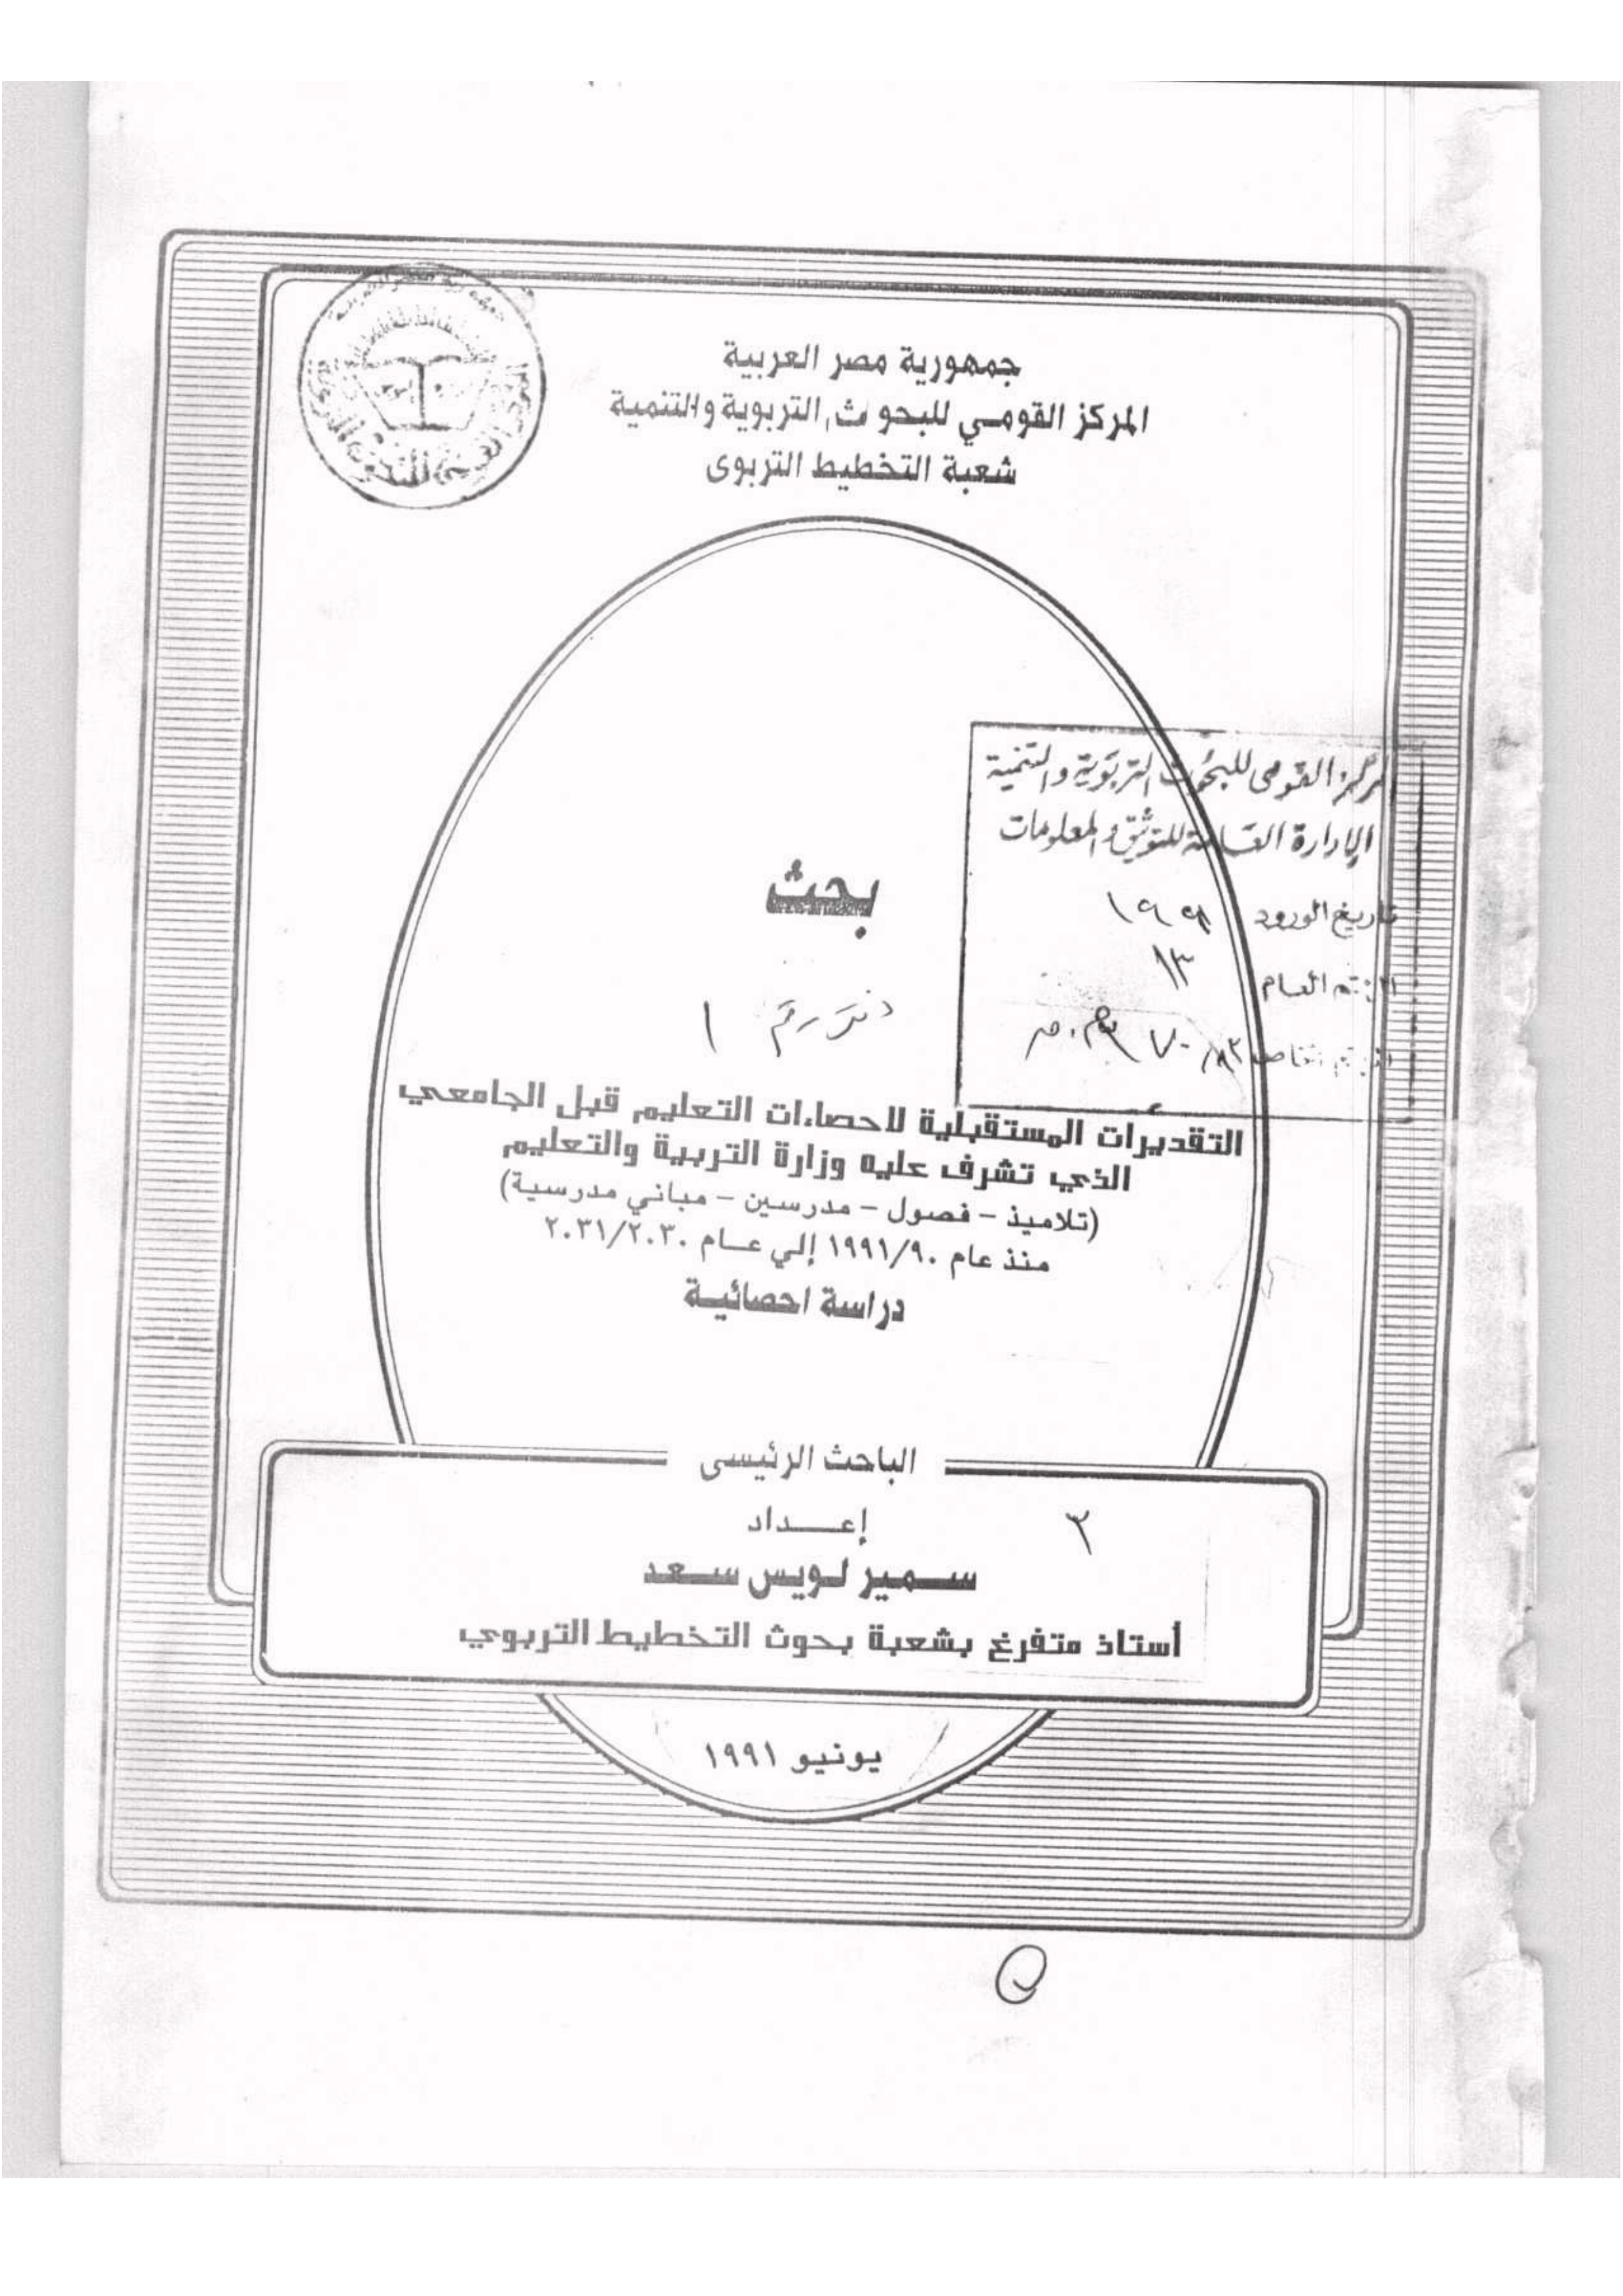 جمهورية مصر العربية
المركز القومي للبحوث التربوية والتنمية
شعبة التخطيط التربوى
المركز القومى للبحوث التربوية والتنمية
الإدارة العامة للتوثيق والمعلومات
تاريخ الورود
الرقم العام ١٣
بحث
١
التقديرات المستقبلية لاحصاءات التعليم قبل الجامعي
الذي تشرف عليه وزارة التربية والتعليم
(تلاميذ - فصول - مدرسين - مباني مدرسية)
منذ عام ١٩٩١/٩٠ إلي عــام ٢٠٣١/٢٠٣٠
دراسة احصائيـة
الباحث الرئيسى
إعــــداد
٣
سـمير لـويس سـعد
أستاذ متفرغ بشعبة بحوث التخطيط التربوي
يونيو ١٩٩١